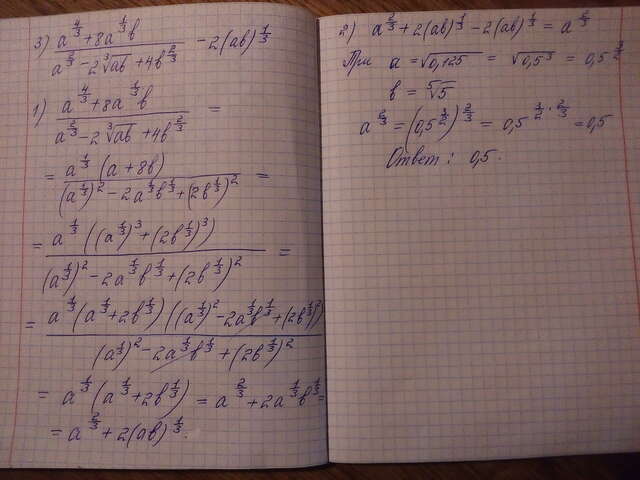 3) (a^(4/3) + 8a^(1/3)b) / (a^(2/3) - 2∛ab + 4b^(2/3)) - 2(ab)^(1/3)
1) (a^(4/3) + 8a^(1/3)b) / (a^(2/3) - 2∛ab + 4b^(2/3)) =
= a^(1/3) (a + 8b) / ((a^(1/3))^2 - 2a^(1/3)b^(1/3) + (2b^(1/3))^2) =
= a^(1/3) ((a^(1/3))^3 + (2b^(1/3))^3) / ((a^(1/3))^2 - 2a^(1/3)b^(1/3) + (2b^(1/3))^2) =
= a^(1/3) (a^(1/3) + 2b^(1/3)) ((a^(1/3))^2 - 2a^(1/3)b^(1/3) + (2b^(1/3))^2) / ((a^(1/3))^2 - 2a^(1/3)b^(1/3) + (2b^(1/3))^2)
= a^(1/3) (a^(1/3) + 2b^(1/3)) = a^(2/3) + 2a^(1/3)b^(1/3) =
= a^(2/3) + 2(ab)^(1/3).
2) a^(2/3) + 2(ab)^(1/3) - 2(ab)^(1/3) = a^(2/3)
При a = √0,125 = √0,5^3 = 0,5^(3/2)
b = ⁵√5
a^(2/3) = (0,5^(3/2))^(2/3) = 0,5^(3/2 · 2/3) = 0,5
Ответ: 0,5.